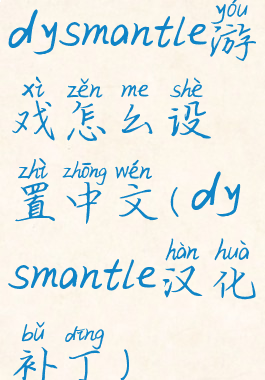 yóu
dysmantle游
xì zěn me shè
戏怎么设
zhì zhōng wén
置中文(dy
hàn huà
smantle汉化
bǔ dīng
补丁)